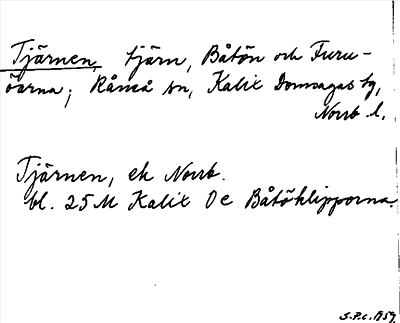 Tjärnen, tjärn, Båtön och Furu-
öarna; Råneå sn, Kalix Domsagas tg,
Norrb l.
Tjärnen, ek Norrb.
bl. 25 M Kalix Oe Båtöklipporna
S.P.C. 1959.